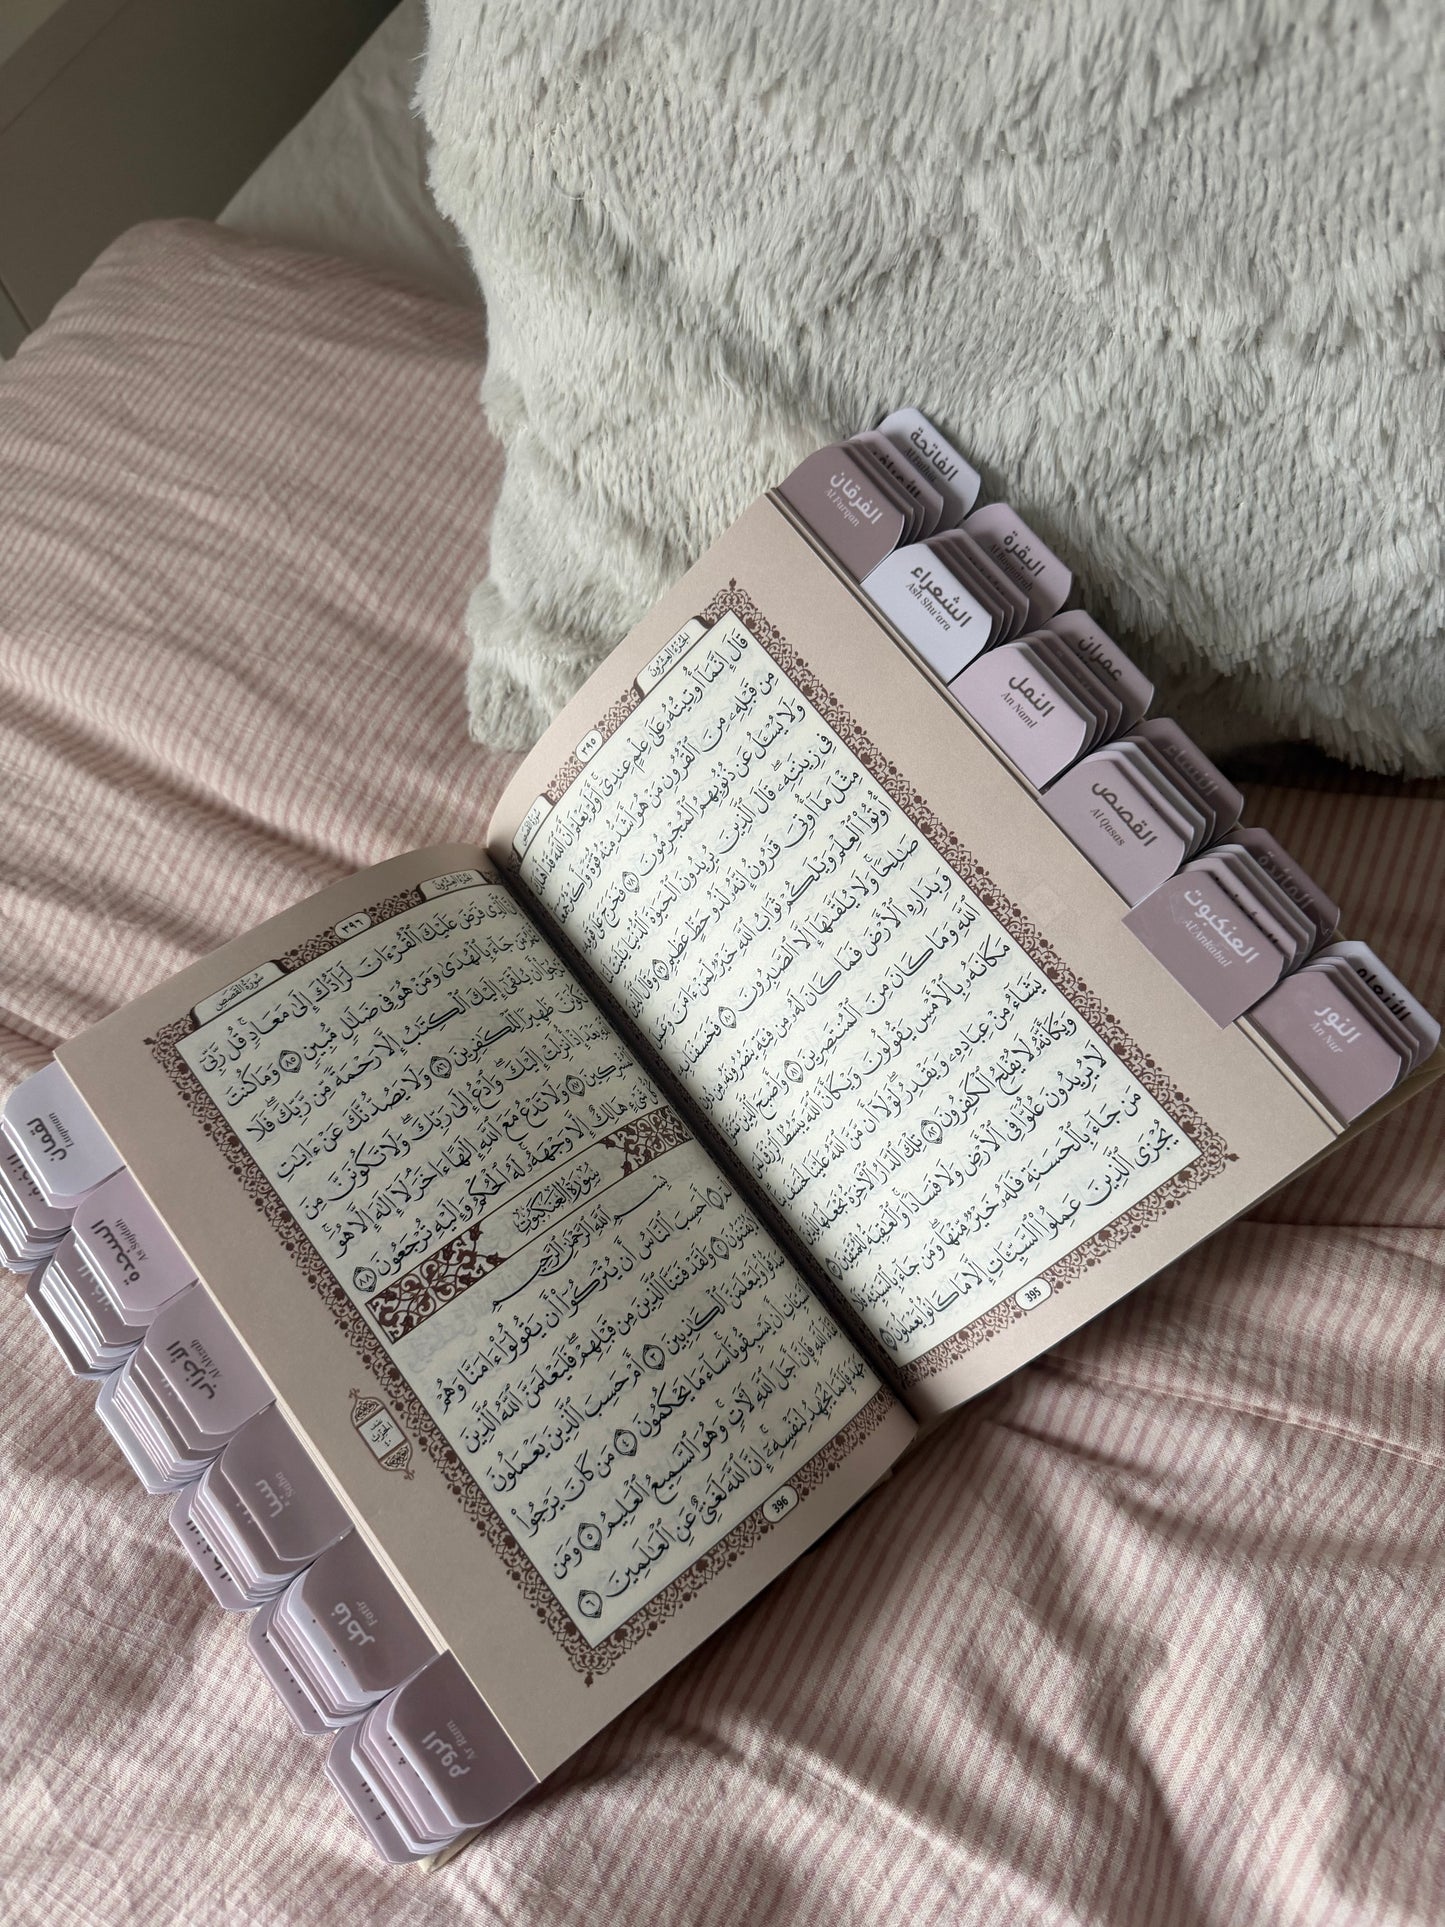 الفاتحة
Al Fatihah
الفرقان
Al Furqan
البقرة
Al Baqarah
الشعراء
Ash Shu'ara
عمران
النمل
An Naml
النساء
القصص
Al Qasas
المائدة
العنكبوت
Al Ankabut
الأنعام
النور
An Nur
الجزء العشرون
٣٩٥
سورة القصص
قَالَ إِنَّمَآ أُوتِيتُهُۥ عَلَىٰ عِلْمٍ عِندِىٓ ۚ أَوَلَمْ يَعْلَمْ أَنَّ ٱللَّهَ قَدْ أَهْلَكَ
مِن قَبْلِهِۦ مِنَ ٱلْقُرُونِ مَنْ هُوَ أَشَدُّ مِنْهُ قُوَّةً وَأَكْثَرُ جَمْعًا ۚ
وَلَا يُسْـَٔلُ عَن ذُنُوبِهِمُ ٱلْمُجْرِمُونَ ٧٨ فَخَرَجَ عَلَىٰ قَوْمِهِۦ
فِى زِينَتِهِۦ ۖ قَالَ ٱلَّذِينَ يُرِيدُونَ ٱلْحَيَوٰةَ ٱلدُّنْيَا يَٰلَيْتَ لَنَا
مِثْلَ مَآ أُوتِىَ قَٰرُونُ إِنَّهُۥ لَذُو حَظٍّ عَظِيمٍ ٧٩ وَقَالَ ٱلَّذِينَ
أُوتُوا۟ ٱلْعِلْمَ وَيْلَكُمْ ثَوَابُ ٱللَّهِ خَيْرٌ لِّمَنْ ءَامَنَ وَعَمِلَ
صَٰلِحًا وَلَا يُلَقَّىٰهَآ إِلَّا ٱلصَّٰبِرُونَ ٨٠ فَخَسَفْنَا بِهِۦ
وَبِدَارِهِ ٱلْأَرْضَ فَمَا كَانَ لَهُۥ مِن فِئَةٍ يَنصُرُونَهُۥ مِن دُونِ
ٱللَّهِ وَمَا كَانَ مِنَ ٱلْمُنتَصِرِينَ ٨١ وَأَصْبَحَ ٱلَّذِينَ تَمَنَّوْا۟
مَكَانَهُۥ بِٱلْأَمْسِ يَقُولُونَ وَيْكَأَنَّ ٱللَّهَ يَبْسُطُ ٱلرِّزْقَ لِمَن
يَشَآءُ مِنْ عِبَادِهِۦ وَيَقْدِرُ ۖ لَوْلَآ أَن مَّنَّ ٱللَّهُ عَلَيْنَا لَخَسَفَ بِنَا ۖ
وَيْكَأَنَّهُۥ لَا يُفْلِحُ ٱلْكَٰفِرُونَ ٨٢ تِلْكَ ٱلدَّارُ ٱلْـَٔاخِرَةُ نَجْعَلُهَا لِلَّذِينَ
لَا يُرِيدُونَ عُلُوًّا فِى ٱلْأَرْضِ وَلَا فَسَادًا ۚ وَٱلْعَٰقِبَةُ لِلْمُتَّقِينَ ٨٣
مَن جَآءَ بِٱلْحَسَنَةِ فَلَهُۥ خَيْرٌ مِّنْهَا ۖ وَمَن جَآءَ بِٱلسَّيِّئَةِ فَلَا
يُجْزَى ٱلَّذِينَ عَمِلُوا۟ ٱلسَّيِّـَٔاتِ إِلَّا مَا كَانُوا۟ يَعْمَلُونَ ٨٤
395
الجزء العشرون
٣٩٦
سورة القصص
إِنَّ ٱلَّذِى فَرَضَ عَلَيْكَ ٱلْقُرْءَانَ لَرَآدُّكَ إِلَىٰ مَعَادٍ ۚ قُل رَّبِّىٓ
أَعْلَمُ مَن جَآءَ بِٱلْهُدَىٰ وَمَنْ هُوَ فِى ضَلَٰلٍ مُّبِينٍ ٨٥ وَمَا كُنتَ
تَرْجُوٓا۟ أَن يُلْقَىٰٓ إِلَيْكَ ٱلْكِتَٰبُ إِلَّا رَحْمَةً مِّن رَّبِّكَ ۖ فَلَا
تَكُونَنَّ ظَهِيرًا لِّلْكَٰفِرِينَ ٨٦ وَلَا يَصُدُّنَّكَ عَنْ ءَايَٰتِ
ٱللَّهِ بَعْدَ إِذْ أُنزِلَتْ إِلَيْكَ ۖ وَٱدْعُ إِلَىٰ رَبِّكَ ۖ وَلَا تَكُونَنَّ مِنَ
ٱلْمُشْرِكِينَ ٨٧ وَلَا تَدْعُ مَعَ ٱللَّهِ إِلَٰهًا ءَاخَرَ ۘ لَآ إِلَٰهَ إِلَّا هُوَ ۚ
كُلُّ شَىْءٍ هَالِكٌ إِلَّا وَجْهَهُۥ ۚ لَهُ ٱلْحُكْمُ وَإِلَيْهِ تُرْجَعُونَ ٨٨
سورة العنكبوت
بِسْمِ ٱللَّهِ ٱلرَّحْمَٰنِ ٱلرَّحِيمِ
الٓمٓ ١ أَحَسِبَ ٱلنَّاسُ أَن يُتْرَكُوٓا۟ أَن يَقُولُوٓا۟ ءَامَنَّا وَهُمْ
لَا يُفْتَنُونَ ٢ وَلَقَدْ فَتَنَّا ٱلَّذِينَ مِن قَبْلِهِمْ ۖ فَلَيَعْلَمَنَّ ٱللَّهُ ٱلَّذِينَ
صَدَقُوا۟ وَلَيَعْلَمَنَّ ٱلْكَٰذِبِينَ ٣ أَمْ حَسِبَ ٱلَّذِينَ يَعْمَلُونَ
ٱلسَّيِّـَٔاتِ أَن يَسْبِقُونَا ۚ سَآءَ مَا يَحْكُمُونَ ٤ مَن كَانَ يَرْجُوا۟
لِقَآءَ ٱللَّهِ فَإِنَّ أَجَلَ ٱللَّهِ لَـَٔاتٍ ۚ وَهُوَ ٱلسَّمِيعُ ٱلْعَلِيمُ ٥ وَمَن
جَٰهَدَ فَإِنَّمَا يُجَٰهِدُ لِنَفْسِهِۦٓ ۚ إِنَّ ٱللَّهَ لَغَنِىٌّ عَنِ ٱلْعَٰلَمِينَ ٦
396
لقمان
Luqman
السجدة
As Sajdah
الأحزاب
Al Ahzab
سبأ
Saba
فاطر
Fatir
الروم
Ar Rum